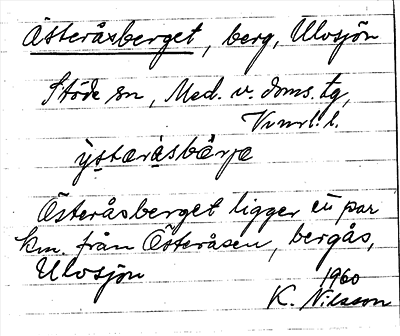 Österåsberget, berg, Ulvsjön
Stöde sn, Med. v. doms. tg,
Vnrl. l.
ỳstæràsbærje
Österåsberget ligger ett par
km. från Österåsen, bergås,
Ulvsjön
1960
K. Nilsson